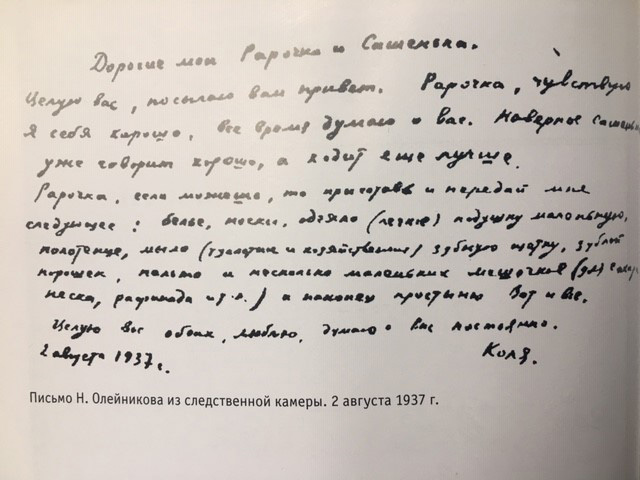 Дорогие мои Рарочка и Сашенька.
Целую вас, посылаю вам привет. Рарочка, чувствую
я себя хорошо, все время думаю о вас. Наверное Сашенька
уже говорит хорошо, а ходит еще лучше.
Рарочка, если можешь, то приготовь и передай мне
следующее: белье, носки, одеяло (легкое) подушку маленькую,
полотенце, мыло (туалетное и хозяйственное) зубную щетку, зубной
порошек, пальто и несколько маленьких мешочков (для сахар.
песка, рафинада и т.п.) и наконец простыню Вот и все.
Целую вас обоих, люблю, думаю о вас постоянно.
2 августа 1937 г. Коля.
Письмо Н. Олейникова из следственной камеры. 2 августа 1937 г.